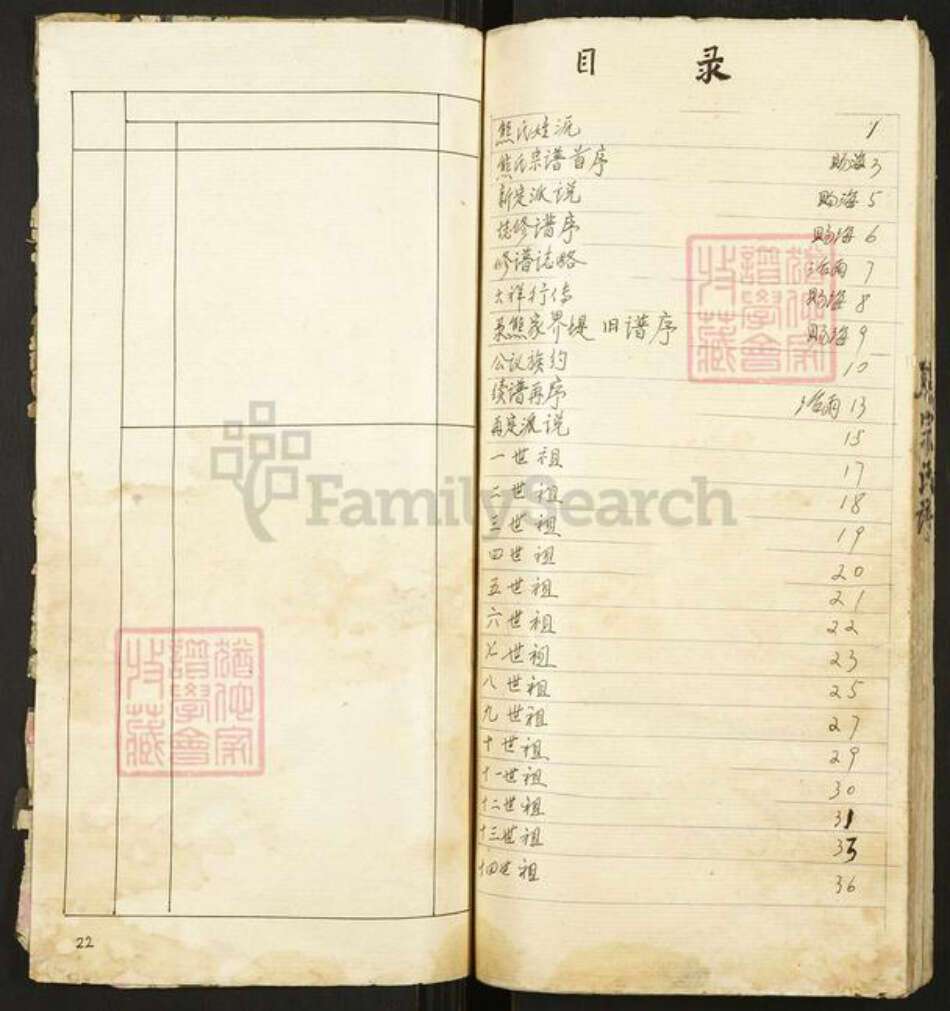 目 录
熊氏 派 1
熊氏宗谱首序 赐海 3
新定派说 赐海 5
修谱序 赐海 6
修谱誌略 治雨 7
大祥行传 赐海 8
熊家界堤 旧谱序 赐海 9
公议族约 10
续谱再序 治雨 13
再定派说 15
一世祖 17
二世祖 18
三世祖 19
四世祖 20
五世祖 21
六世祖 22
七世祖 23
八世祖 25
九世祖 27
十世祖 29
十一世祖 30
十二世祖 31
十三世祖 33
十四世祖 36
22
譜學會
收藏
FamilySearch